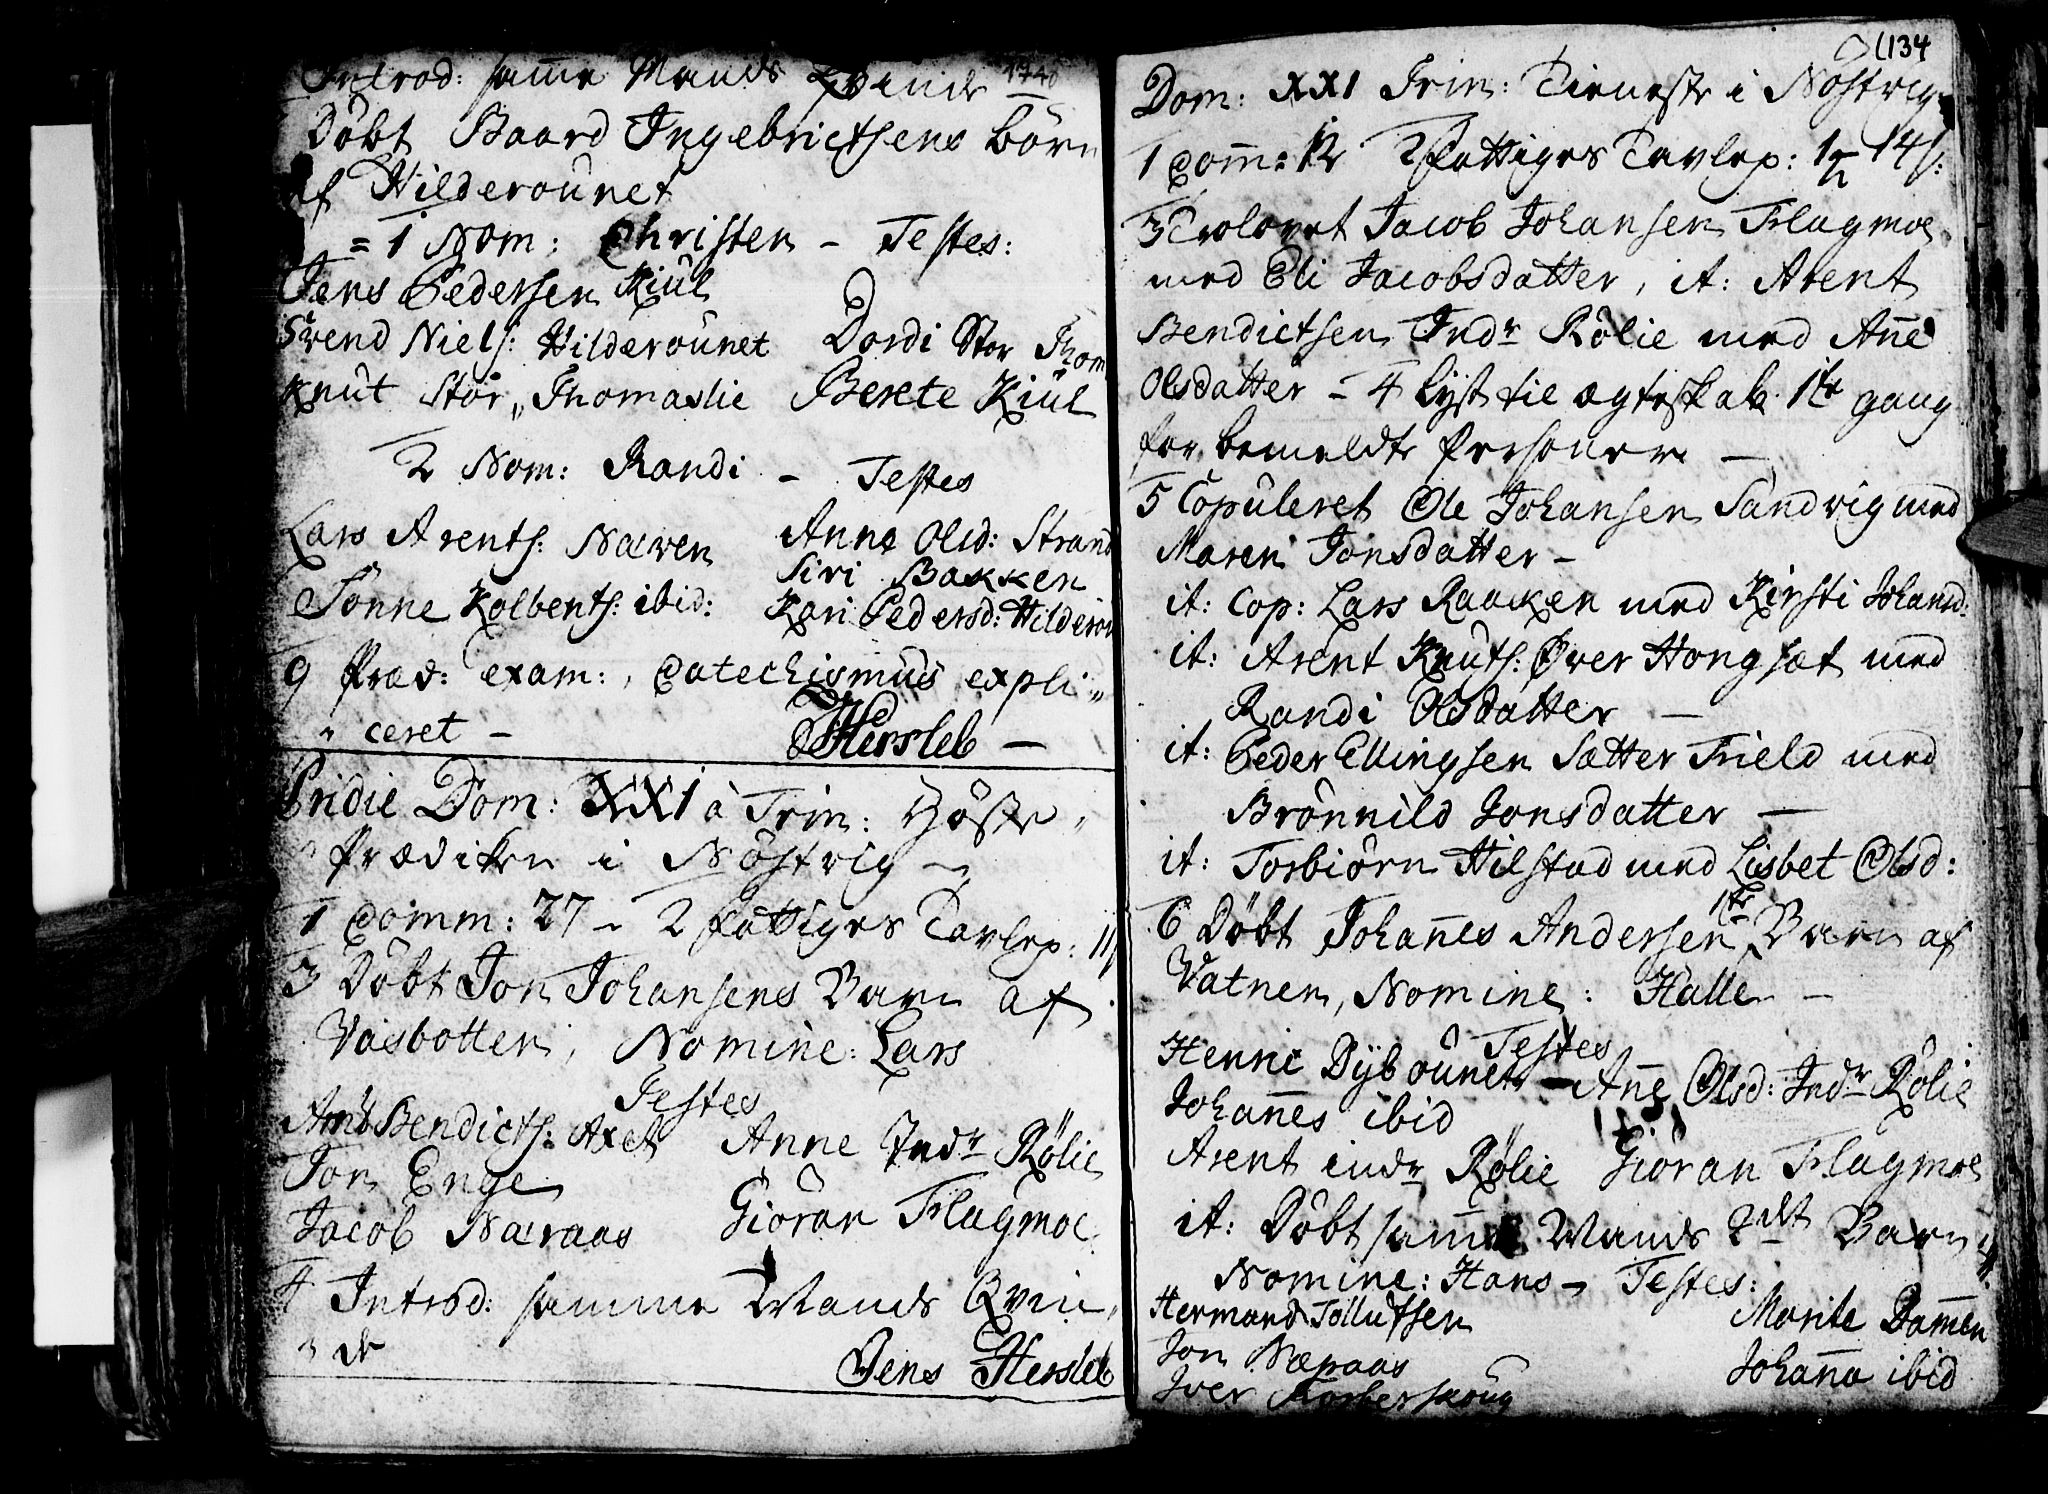 Introd: samme Mands Qvinde 1748
Døbt Baard Ingebrictsens börn
af Hilderöunet
= 1 Nom: Christen – Testes:
Jens Pedersen Kiul
Svend Niels: Hilderöunet Dordi Stor Thom
Knut Stor„ Thomaslie Berete Kiul
2 Nom: Randi – Testes
Lars Arents: Næven Anne Olsd: Strand
Siri Bakken
Sonne Kolbents: ibid: Kari Pedersd: Hilderöu
9 Præd: exam:, Catechismus expli„
„ ceret –
JHersleb –
Pridie Dom: XXI à Trin: Höste„
„ Prædiken i Nöstvig –
1 Comm: 27 – 2 fattiges Tavlep: 11
3 Döbt Jon Johansens Barn af
Vaisbotten, Nomine: Lars
Testes
Bendicts: Axel Anne Indr Rølie
Jon Enge
Jacob Næraas Giöran Flagmoe
4 Introd: samme Mands Qvin„
„ de
Jens Hersleb
134
Dom: XXI Trin: Tieneste i Nöstvig
1 Comm: 12 2 fattiges Tavlep: 14 s:
3 Trolovet Jacob Johansen Flagmoe
med Eli Jacobsdatter, it: Arent
Bendictsen Indr Rölie med Anne
Olsdatter – 4 lyst til ægteskab 1te gang
for bemeldte Personer –
5 Copuleret Ole Johansen Sandvig med
Maren Jonsdatter –
it: Cop: Lars Raaken med Kirsti Johansd:
it: Arent Knuts: Över Hongsæt med
Randi Olsdatter –
it: Peder Ellingsen Sætter Field med
Brönnild Jonsdatter –
it: Torbiörn Hilstad med Lisbet Olsd:
6 Döbt Johannes Andersen 1te Barn af
Vatnen, Nomine: Halle –
Testes
Henric Dyböunet – Anne Olsd: Indr Rölie
Johannes ibid
Arent indr Rølie Giöran Flagmoe
it: Döbt samme Mands 2det Barn
Nomine: Hans – Testes:
Hermand Tollufsen Marite Dammen
Jon Næraas Johanna ibid
Iver